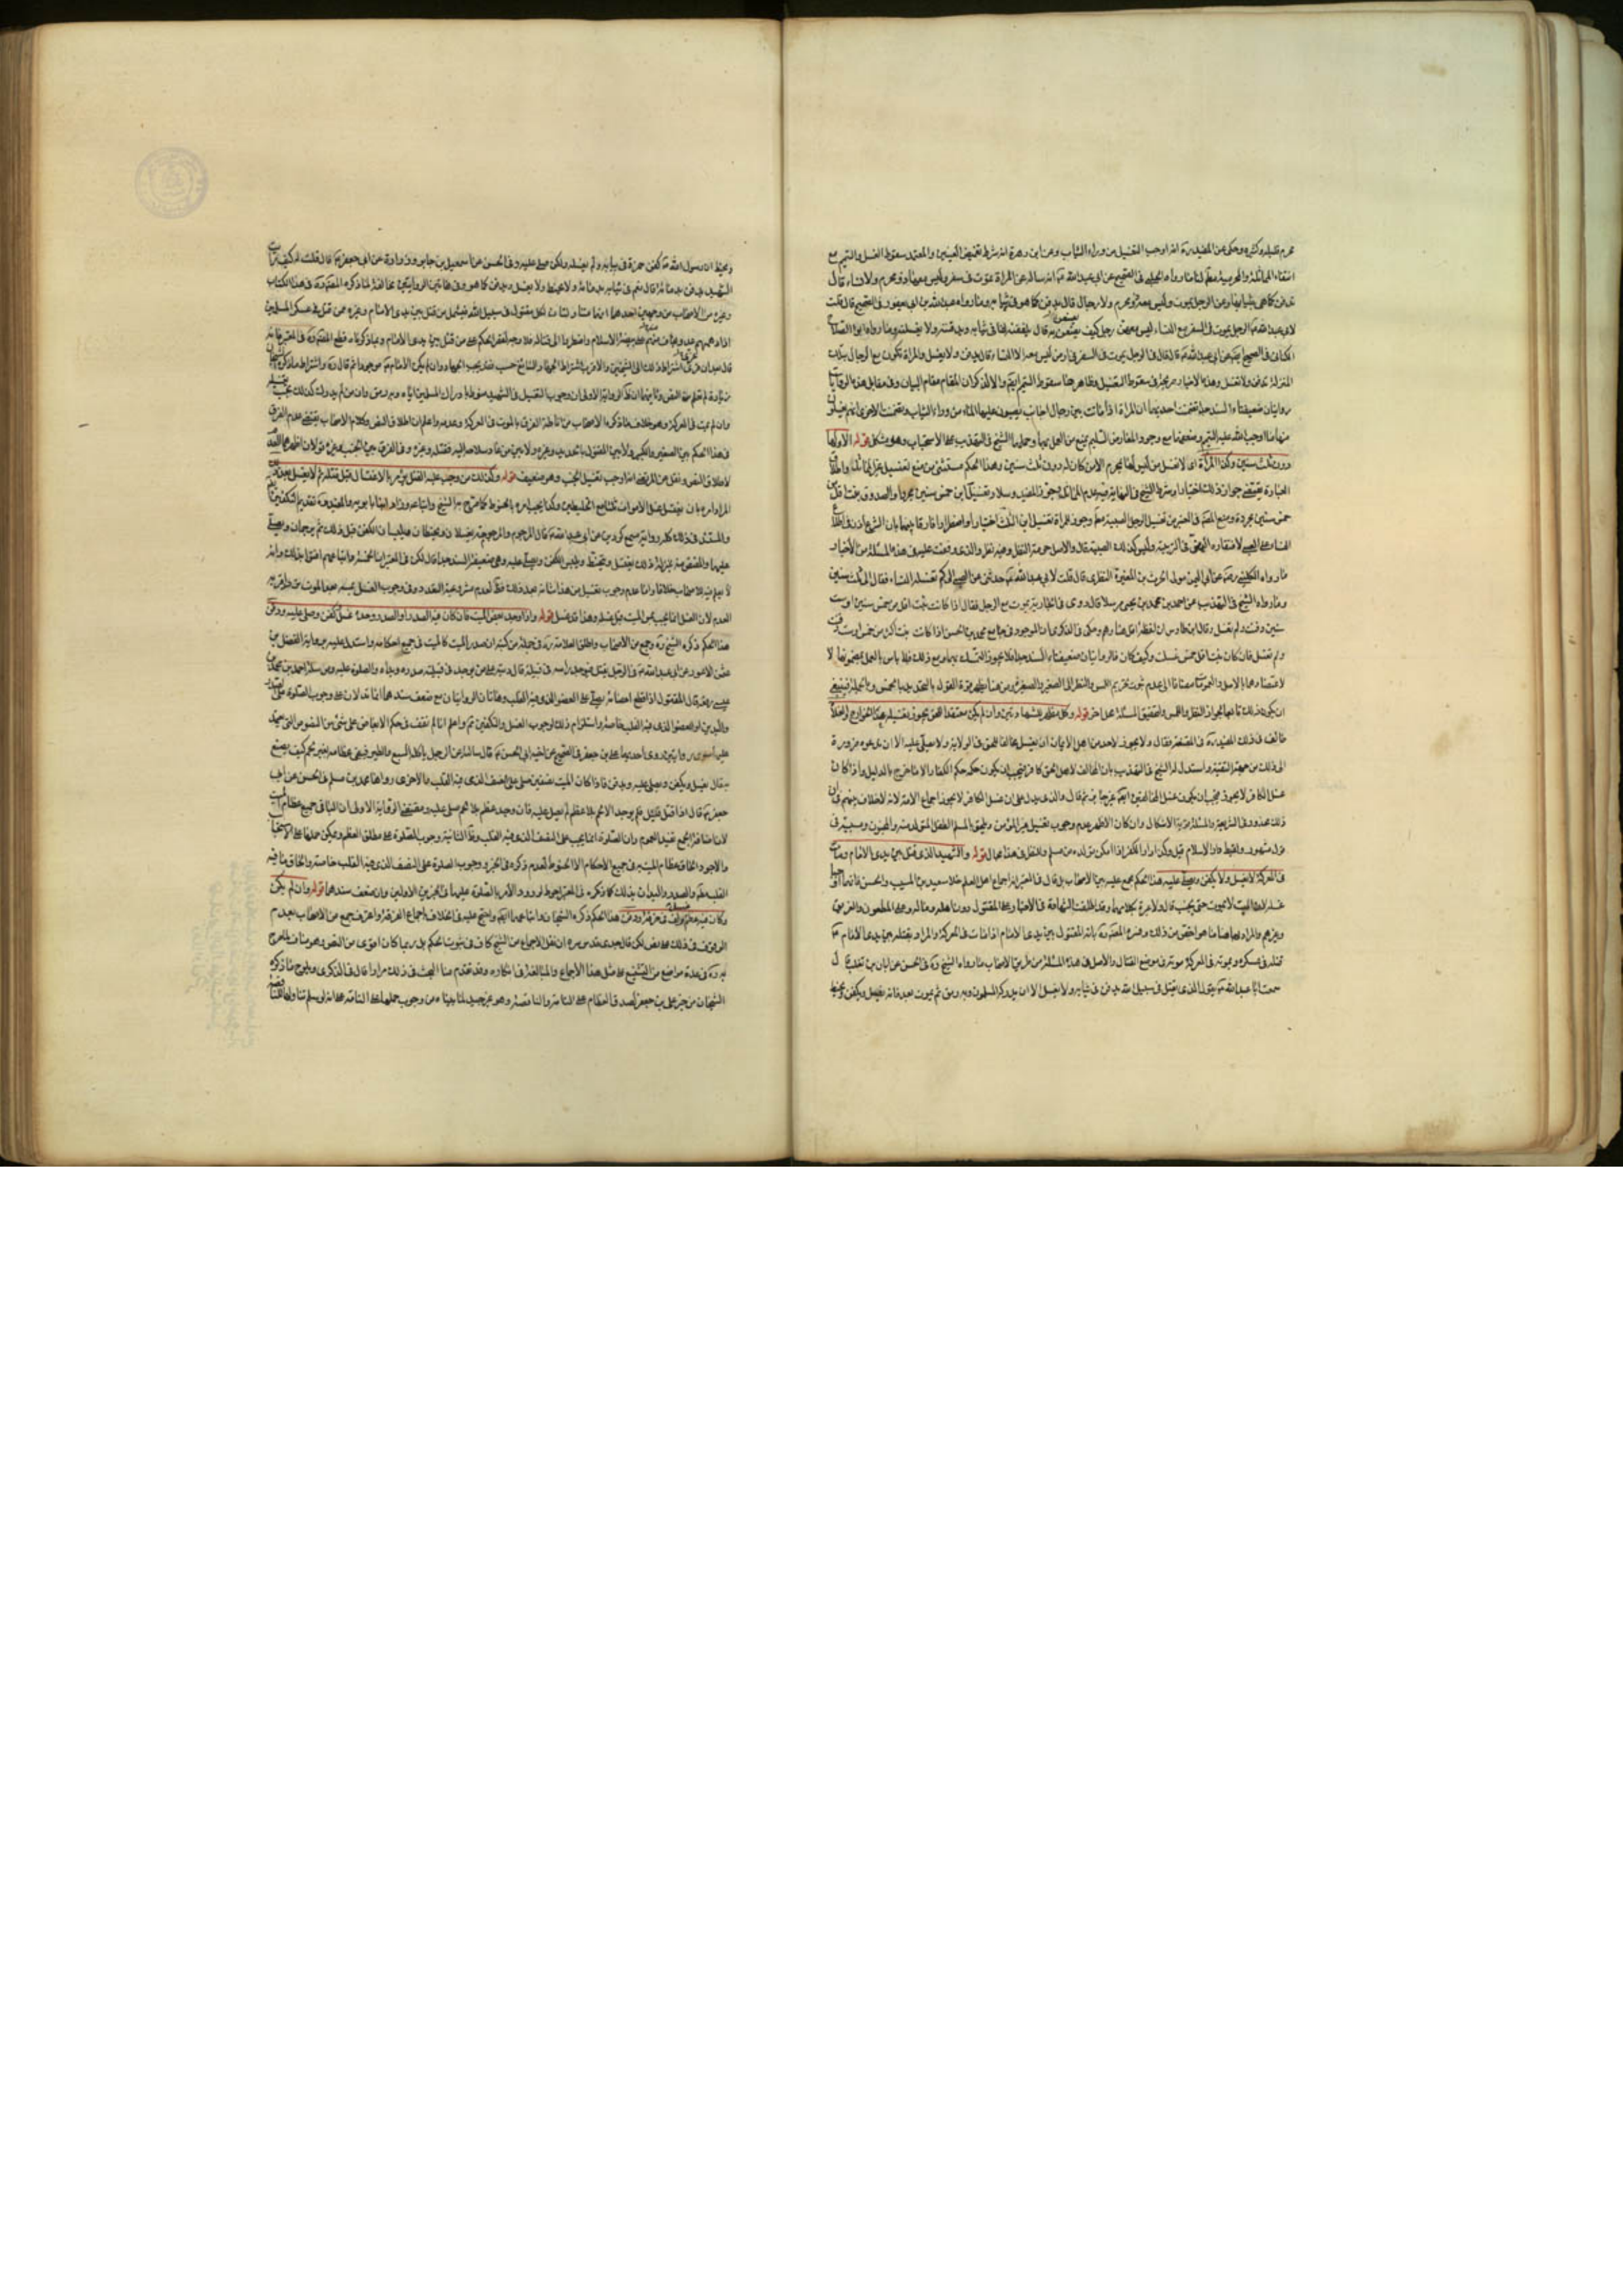 محرم غسله وكثيره وحكى عن المفيد ره انه اوجب التغسيل من وراء الثياب وعن ابن زهرة انه شرط تغميض العينين والمعتمد سقوط الغسل والتيمم مع
انتفاء المماثلة والمحرمية مطلقا لنا ما رواه الحلبي في الصحيح عن ابي عبد الله ع انه ساله عن المراة تموت في سفر وليس معها ذو محرم ولا نساء قال
تدفن كما هي بثيابها وعن الرجل يموت وليس معه ذو محرم ولا رجال قال يدفن كما هو في ثيابه وما رواه عبد الله بن ابي يعفور في الصحيح قال قلت
لابي عبد الله ع الرجل يموت في السفر مع النساء ليس معهن رجل كيف يصنعن به قال يلففنه لفا في ثيابه ويدفنه ولا يغسلنه وما رواه ابو الصباح
الكناني في الصحيح عن ابي عبد الله ع قال قال في الرجل يموت في السفر في ارض ليس معه الا النساء قال يدفن ولا يغسل والمراة تكون مع الرجال بتلك
المنزلة تدفن ولا تغسل وهذه الاخبار صريحة في سقوط التغسيل وظاهرها سقوط التيمم ايضا والا لذكر لان المقام مقام البيان وفي مقابل هذه الروايات
روايتان ضعيفتا السند جدا تضمنت احديهما ان المراة اذا ماتت بين رجال اجانب يصبون عليها الماء من وراء الثياب وتضمنت الاخرى انهم يغسلون
منها ما اوجب الله عليه التيمم وضعفهما مع وجود المعارض السليم يمنع من العمل بهما وحملهما الشيخ في التهذيب على الاستحباب وهو مشكل قوله الاولها
دون ثلث سنين وكذا المرأة اي لا تغسل من ليس لها بمحرم الا من كان له دون ثلث سنين وهذا الحكم مستثنى من منع تغسيل غير المماثل واطلاق
العبارة يقتضي جواز ذلك اختيارا وشرط الشيخ في النهاية فيه عدم المماثل وجوز المفيد وسلار تغسيل ابن خمس سنين مجردا والصدوق بنت اقل من
خمس سنين مجردة ومنع المصنف في المعتبر من تغسيل الرجل الصبية مطلقا وجوز للمراة تغسيل ابن الثلث اختيارا واضطرارا فارقا بينهما بان الشرع اذن في اطلاع
النساء على الصبي لافتقاره اليهن في التربية وليس كذلك الصبية قال والاصل حرمة النظر وفيه نظر والذي وقفت عليه في هذه المسئلة من الاخبار
ما رواه الكليني رحمه عن ابي النمير مولى الحرث بن المغيرة النضري قال قلت لابي عبد الله ع حدثني عن الصبي الى كم تغسله النساء فقال الى ثلث سنين
وما رواه الشيخ في التهذيب عن احمد بن محمد بن يحيى مرسلا قال روى في الجارية تموت مع الرجل فقال اذا كانت بنت اقل من خمس سنين او ست
سنين دفنت ولم تغسل وقال ابن طاوس ان لفظة اقل هنا وهم وحكى في الذكرى ان الموجود في جامع محمد بن الحسن اذا كانت بنت اكثر من خمس او ست دفنت
ولم تغسل فان كان بنت اقل خمس غسلت وكيف كان فالروايتان ضعيفتا السند جدا فلا يجوز التمسك بهما ومع ذلك فلا باس بالعمل بمضمونها لا
عتضادهما بالاصل والعمومات مضافا الى عدم ثبوت تحريم اللمس والنظر الى الصغير والصغيرة ومن هنا يظهر قوة القول بالتحديد بالخمس وبالجملة فينبغي
ان يكون ذلك تابعا لجواز النظر واللمس ولتحقيق المسئلة محل اخر قوله وكل مظهر للشهادتين وان لم يكن معتقدا للحق يجوز تغسيله عدا الخوارج والغلاة
خالف في ذلك المفيد ره في المقنعة فقال ولا يجوز لاحد من اهل الايمان ان يغسل مخالفا للحق في الولاية ولا يصلي عليه الا ان تدعوه ضرورة
الى ذلك من جهة التقية واستدل له الشيخ في التهذيب بان المخالف لاهل الحق كافر فيجب ان يكون حكمه حكم الكفار الا ما خرج بالدليل واذا كان
غسل الكافر لا يجوز فيجب ان يكون غسل المخالفين ايضا غير جايز ثم قال والذي يدل على ان غسل الكافر لا يجوز اجماع الامة لانه لا خلاف بينهم في ان
ذلك محذور في الشريعة والمسئلة قوية الاشكال وان كان الاظهر عدم وجوب تغسيل غير المؤمن ويلحق بالمسلم الطفل المتولد منه والمجنون ومسبيه في
قول مشهور ولقيط دار الاسلام قيل وكذا دار الكفر اذا امكن تولده من مسلم ولا نقل في هذا مجال قوله والشهيد الذي قتل بين يدي الامام ومات
في المعركة لا يغسل ولا يكفن ويصلى عليه هذا الحكم مجمع عليه بين الاصحاب بل قال في المعتبر انه اجماع اهل العلم خلا سعيد بن المسيب والحسن فانهما اوجبا
غسله لان الميت لا يموت حتى يجنب قال ولا عبرة بكلامهما وقد اطلقت الشهادة في الاخبار على المقتول دون اهله وماله وعلى المطعون والغريق
وغيرهم والمراد بها هنا ما هو اخص من ذلك وفسره المصنف ره بانه المقتول بين يدي الامام اذا مات في المعركة والمراد بقتله بين يدي الامام ع
قتله في عسكره وبموته في المعركة موته في موضع القتال والاصل في هذه المسئلة من طريق الاصحاب ما رواه الشيخ ره في الحسن عن ابان بن تغلب قال
سمعت ابا عبد الله ع يقول الذي يقتل في سبيل الله يدفن في ثيابه ولا يغسل الا ان يدركه المسلمون وبه رمق ثم يموت بعد فانه يغسل ويكفن ويحنط
ويحنط ان رسول الله ص كفن حمزة في ثيابه ولم يغسله ولكن صلى عليه وفي الحسن عن اسمعيل بن جابر وزرارة عن ابي جعفر ع قال قلت له كيف رايت
الشهيد يدفن بدمائه قال نعم في ثيابه بدمائه ولا يحنط ولا يغسل ويدفن كما هو وفي هاتين الروايتين مخالفة لما ذكره المصنف ره في هذا الكتاب
وغيره من الاصحاب من وجهين احدهما انهما متناولتان لكل مقتول في سبيل الله فيشمل من قتل بين يدي الامام وغيره ممن قتل في عسكر المسلمين
اذا دهمهم عدو يخاف منهم على بيضة الاسلام واضطروا الى قتاله فلا وجه لقصر الحكم على من قتل بين يدي الامام وبما ذكرناه قطع المصنف ره في المعتبر فانه
قال بعد ان عزى اشتراط ذلك الى الشيخين والاقرب اشتراط الجهاد السائغ حسب فقد يجب الجهاد وان لم يكن الامام ع موجودا ثم قال ره واشتراط ما ذكره الشيخان
زيادة لم تعلم من النص وثانيهما ان ظاهر الرواية الاولى ان وجوب التغسيل في الشهيد منوط بادراك المسلمين اياه وبه رمق وان من لم يدرك كذلك لا يجب تغسيله
وان لم يمت في المعركة وهو خلاف ما ذكره الاصحاب من اناطة الفرق بالموت في المعركة وعدمه واعلم ان اطلاق النص وكلام الاصحاب يقتضي عدم الفرق
في هذا الحكم بين الصغير والكبير ولا بين المقتول بالحديد وغيره ولا بين من عاد سلاحه اليه فقتله وغيره وفي الفرق بين الجنب وغيره قولان اظهرهما العدم
لاطلاق النص ونقل عن المرتضى انه اوجب تغسيل الجنب وهو ضعيف قوله وكذلك من وجب عليه القتل يؤمر بالاغتسال قبل قتله ثم لا يغسل بعد ذلك
المراد امره بان يغتسل غسل الاموات ثلثا مع الخليطين وكذا يجب امره بالحنوط كما صرح به الشيخ واتباعه وزاد ابنا بابويه والمفيد تقديم التكفين
والمستند في ذلك كله رواية مسمع كردين عن ابي عبد الله ع قال المرجوم والمرجومة يغسلان ويحنطان ويلبسان الكفن قبل ذلك ثم يرجمان ويصلى
عليهما والمقتص منه بمنزلة ذلك يغتسل ويتحنط ويلبس الكفن ويصلى عليه وهي ضعيفة السند جدا قال لكن في المعتبر ان الخمسة واتباعهم افتوا بذلك وانه
لا نعلم فيه للاصحاب خلافا واما عدم وجوب تغسيل من هذا شانه بعد ذلك فظاهر لعدم مشروعية التعدد وفي وجوب الغسل بمسه بعد الموت
العدم لان الغسل انما يجب بمس الميت قبل غسله وهذا قد غسل قوله واذا وجد بعض الميت فان كان فيه الصدر او الصدر وحده غسل وكفن وصلي عليه ودفن
هذا الحكم ذكره الشيخ ره وجمع من الاصحاب واطلق العلامة ره في جملة من كتبه ان صدر الميت كالميت في جميع احكامه واستدل عليه برواية الفضل بن
عثمن الاعور عن ابي عبد الله ع في الرجل يقتل فيوجد راسه في قبيلة قال ديته على من يوجد في قبيلته صدره ويداه والصلوة عليه ومرسلة احمد بن محمد بن
عيسى رفعه قال المقتول اذا قطع اعضاؤه يصلى على العضو الذي فيه القلب وهاتان الروايتان مع ضعف سندهما انما تدلان على وجوب الصلوة على الصدر
واليدين او العضو الذي فيه القلب خاصة واستلزام ذلك لوجوب الغسل والتكفين ثم واعلم انا لم نقف في حكم الابعاض على شئ من النصوص التي
عليها سوى روايتين روى احديهما علي بن جعفر في الصحيح عن اخيه ابي الحسن ع قال سالته عن الرجل ياكله السبع والطير فيبقى عظامه بغير لحم كيف يصنع
به قال يغسل ويكفن ويصلى عليه ويدفن فاذا كان الميت نصفين صلي على النصف الذي فيه القلب والاخرى رواها محمد بن مسلم في الحسن عن ابي
جعفر ع قال اذا قتل قتيل فلم يوجد الا لحم بلا عظم لم يصل عليه فان وجد عظم بلا لحم صلي عليه ومقتضى الرواية الاولى ان الباقي جميع عظام الميت
لان اضافة الجمع تفيد العموم وان الصلوة انما يجب على النصف الذي فيه القلب وظاهر الثانية وجوب الصلوة على مطلق العظم ويمكن حملها على الاستحباب
والاجود الحاق عظام الميت به في جميع الاحكام الا الحنوط لعدم ذكره في الخبر ووجوب الصلوة على النصف الذي فيه القلب خاصة والحاق ما فيه
القلب مطلقا والصدر واليدان بذلك كما ذكره في المعتبر احوط لورود الامر بالصلوة عليهما في الخبرين الاولين وان ضعف سندهما قوله وان لم يكن
وكان فيه عظم غسل ولف في خرقة ودفن هذا الحكم ذكره الشيخان واتباعهما واحتج عليه في الخلاف باجماع الفرقة واعترف جمع من الاصحاب بعدم
الوقوف في ذلك على نص لكن قال جدي قدس سره ان نقل الاجماع من الشيخ كاف في ثبوت الحكم بل ربما كان اقوى من النص وهو مناف لما صرح
به ره في عدة مواضع من التشنيع على مثل هذا الاجماع والمبالغة في انكاره وقد تقدم منا البحث في ذلك مرارا قال في الذكرى ويلوح ما ذكره
الشيخان من خبر علي بن جعفر لصدق العظام على التامة والناقصة وهو غير جيد لما بيناه من وجوب حملها على التامة على انه لو سلم تناولها للناقصة